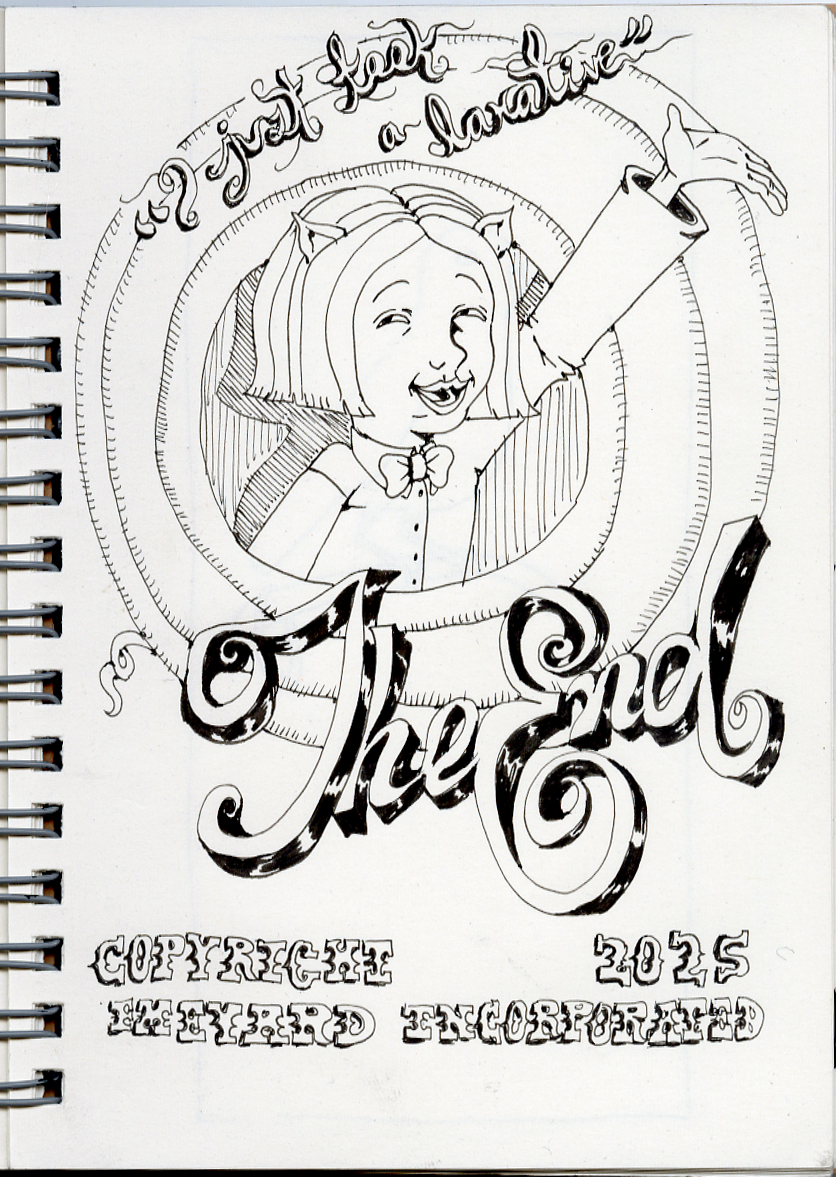 "I just took
a laxative"
The End
COPYRIGHT 2025
EMEYARD INCORPORATED